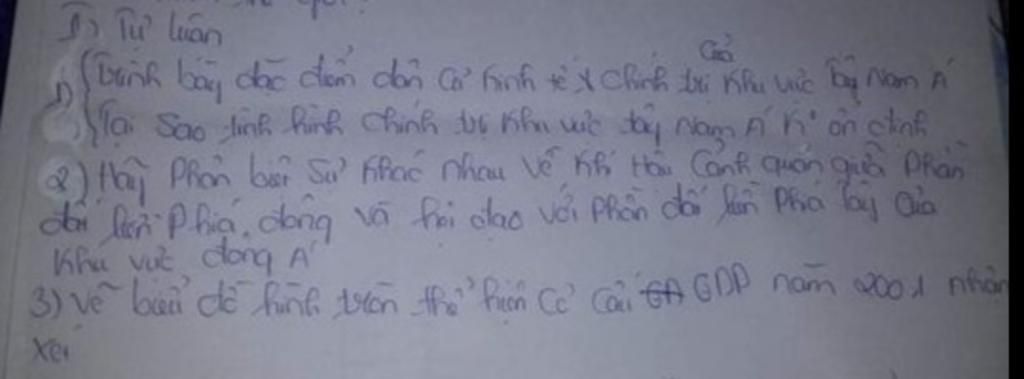 II) Tự luận
của
1) Trình bày đặc điểm dân cư kinh tế, chính trị khu vực Tây Nam Á
Tại sao tình hình chính trị khu vực Tây Nam Á k' ổn định
2) Hãy Phân biệt sự khác nhau về khí hậu cảnh quan giữa Phần
đất liền phía đông và hải đảo với phần đất liền phía tây của
khu vực đông Á
3) vẽ biểu đồ hình tròn thể hiện cơ cấu GDP năm 2001 nhận
xét